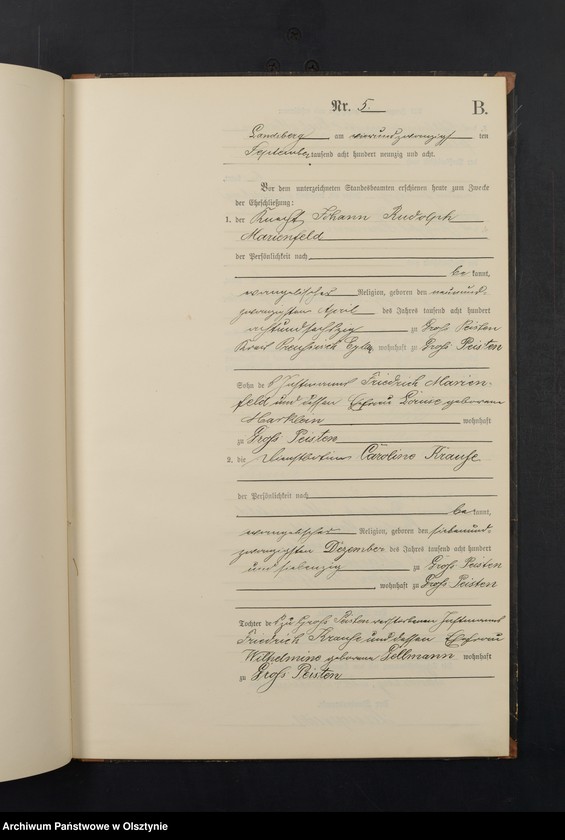 Nr. 5. B.
Landsberg am vierundzwanzigst ten
September tausend acht hundert neunzig und acht.
Vor dem unterzeichneten Standesbeamten erschienen heute zum Zwecke
der Eheschließung:
1. der Knecht Johann Rudolph
Marienfeld
der Persönlichkeit nach
be kannt,
evangelischer Religion, geboren den neunund-
zwanzigsten April des Jahres tausend acht hundert
achtundsechszig zu Groß Peisten
Kreis Preußisch Eylau, wohnhaft zu Groß Peisten
Sohn des Instmanns Friedrich Marien-
feld und dessen Ehefrau Louise geborene
wohnhaft
zu Groß Peisten
2. die Caroline Krause
der Persönlichkeit nach
be kannt,
evangelischer Religion, geboren den siebenund-
zwanzigsten Dezember des Jahres tausend acht hundert
und siebenzig zu Groß Peisten
, wohnhaft zu Groß Peisten
Tochter des zu Groß Peisten verstorbenen Instmanns
Friedrich Krause und dessen Ehefrau
Wilhelmine geborene Tellmann wohnhaft
zu Groß Peisten
Archiwum Państwowe w Olsztynie